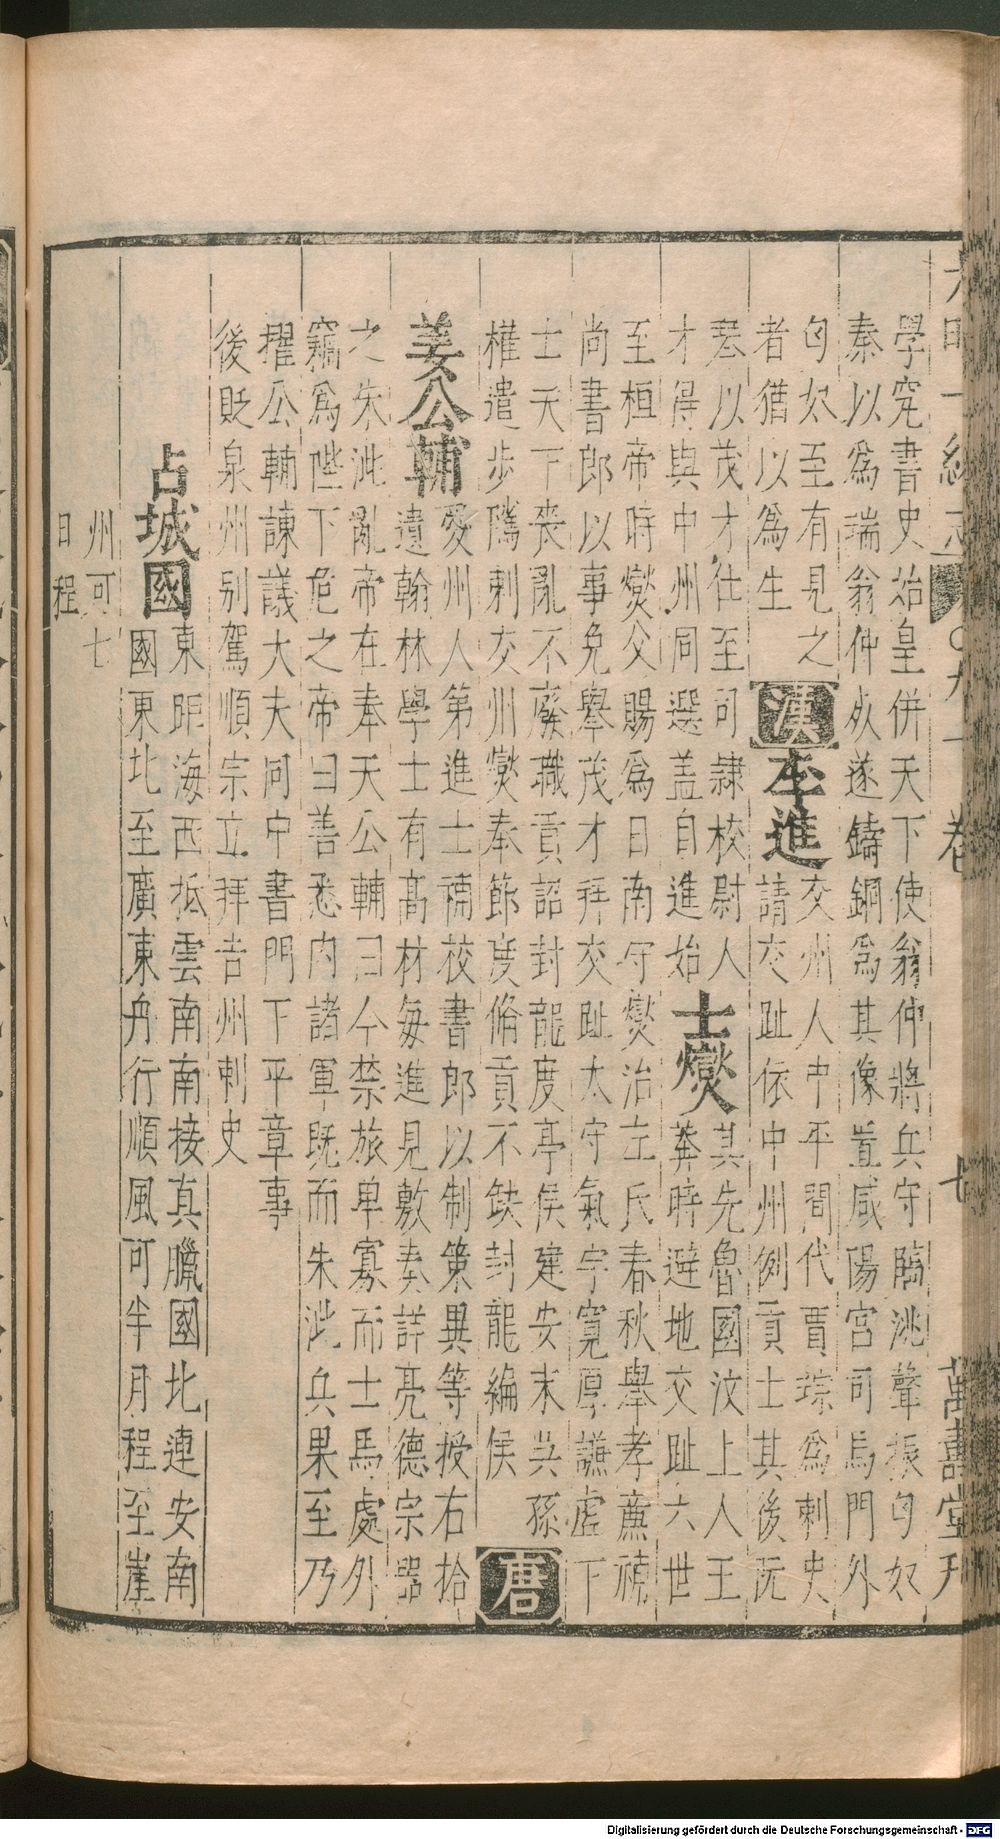 大明一統志 九十卷 七 萬壽堂刋
學究書史始皇併天下使翁仲將兵守臨洮聲振匈奴
秦以為瑞翁仲死遂鑄銅為其像置咸陽宮司馬門外
匈奴至有見之
者猶以為生
漢
李進
交州人中平間代賈琮為刺史
請交趾依中州例貢士其後阮
琴以茂才仕至司隷校尉人
才得與中州同選盖自進始
士燮
其先魯國汶上人王
莽時避地交趾六世
至桓帝時燮父賜為日南守燮治左氏春秋舉孝廉補
尚書郎以事免舉茂才拜交趾太守氣宇寬厚謙虛下
士天下喪亂不廢職貢詔封龍度亭侯建安末吳孫
權遣步隲刺交州燮奉節度脩貢不缺封龍編侯
唐
姜公輔
愛州人第進士補校書郎以制策異等授右拾
遺翰林學士有高材每進見敷奏詳亮德宗器
之朱泚亂帝在奉天公輔曰今禁旅單寡而士馬處外
竊為陛下危之帝曰善悉內諸軍既而朱泚兵果至乃
擢公輔諫議大夫同中書門下平章事
後貶泉州别駕順宗立拜吉州刺史
占城國
東距海西抵雲南南接真臘國北連安南
國東北至廣東舟行順風可半月程至崖
州可七
日程
Digitalisierung gefördert durch die Deutsche Forschungsgemeinschaft - DFG